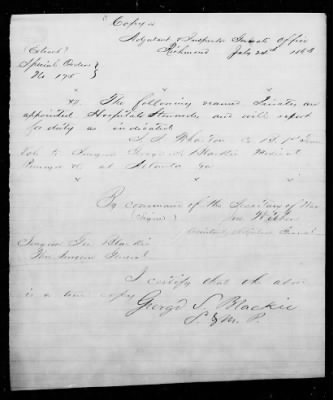 Copy
Adjutant & Inspector Genls Office
Richmond July 25th 186
(Extract)
Special Orders
No 175
XI. The following named Privates are
appointed Hospital Stewards and will report
for duty as indicated
Wharton Co B. 1st
to Surgeon Geo S Blackie Medical
Purveyor &c at Atlanta Ga
By command of the Secretary of War
(Signed) Jno Withers
Assistant Adjutant General
Surgeon Geo Blackie
Thro Surgeon General
I certify that the above
is a true copy
George S. Blackie
S. & M. P.